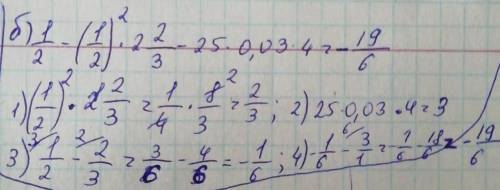 б) 1/2 - (1/2)² · 2 2/3 - 25 · 0,03 · 4 = - 19/6
1) (1/2)² · 2 2/3 = 1/4 · 8/3 ² = 2/3 ; 2) 25·0,03 ·4 = 3
3) ³⁾1/2 - ²⁾2/3 = 3/6 - 4/6 = - 1/6 ; 4) - 1/6 - ⁶⁾3/1 = - 1/6 - 18/6 = - 19/6